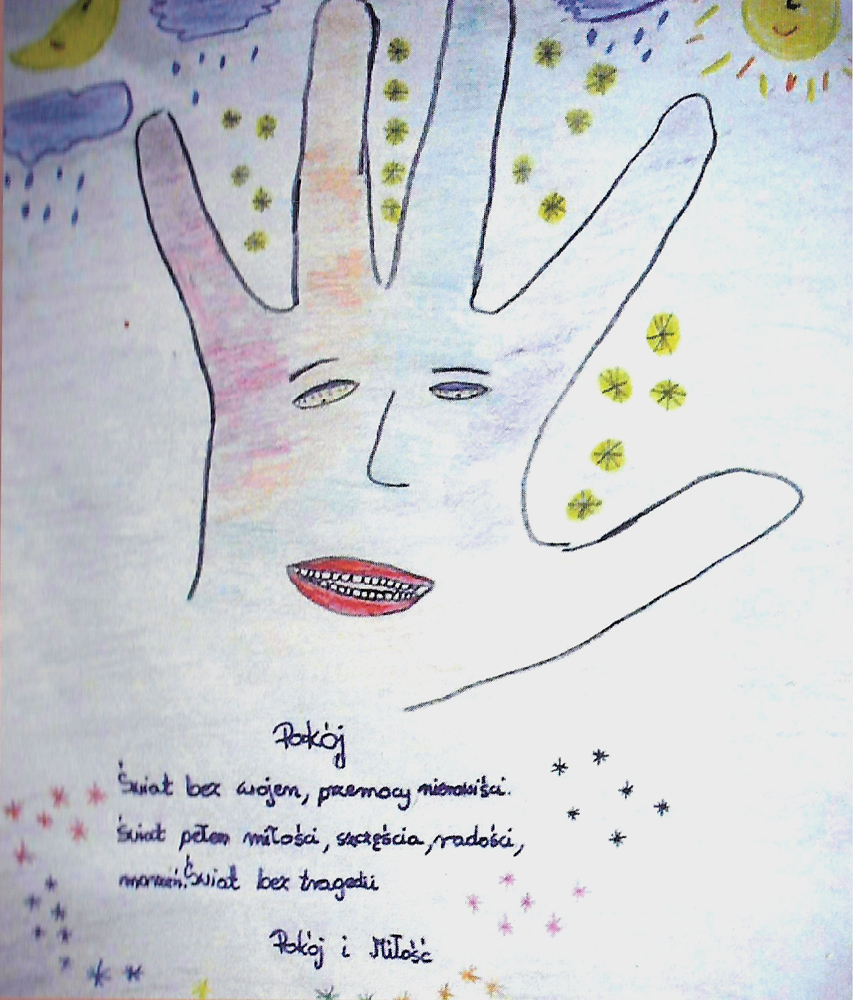 Pokój
Świat bez wojen, przemocy nienawiści.
Świat pełen miłości, szczęścia, radości,
Świat bez tragedii
Pokój i Miłość